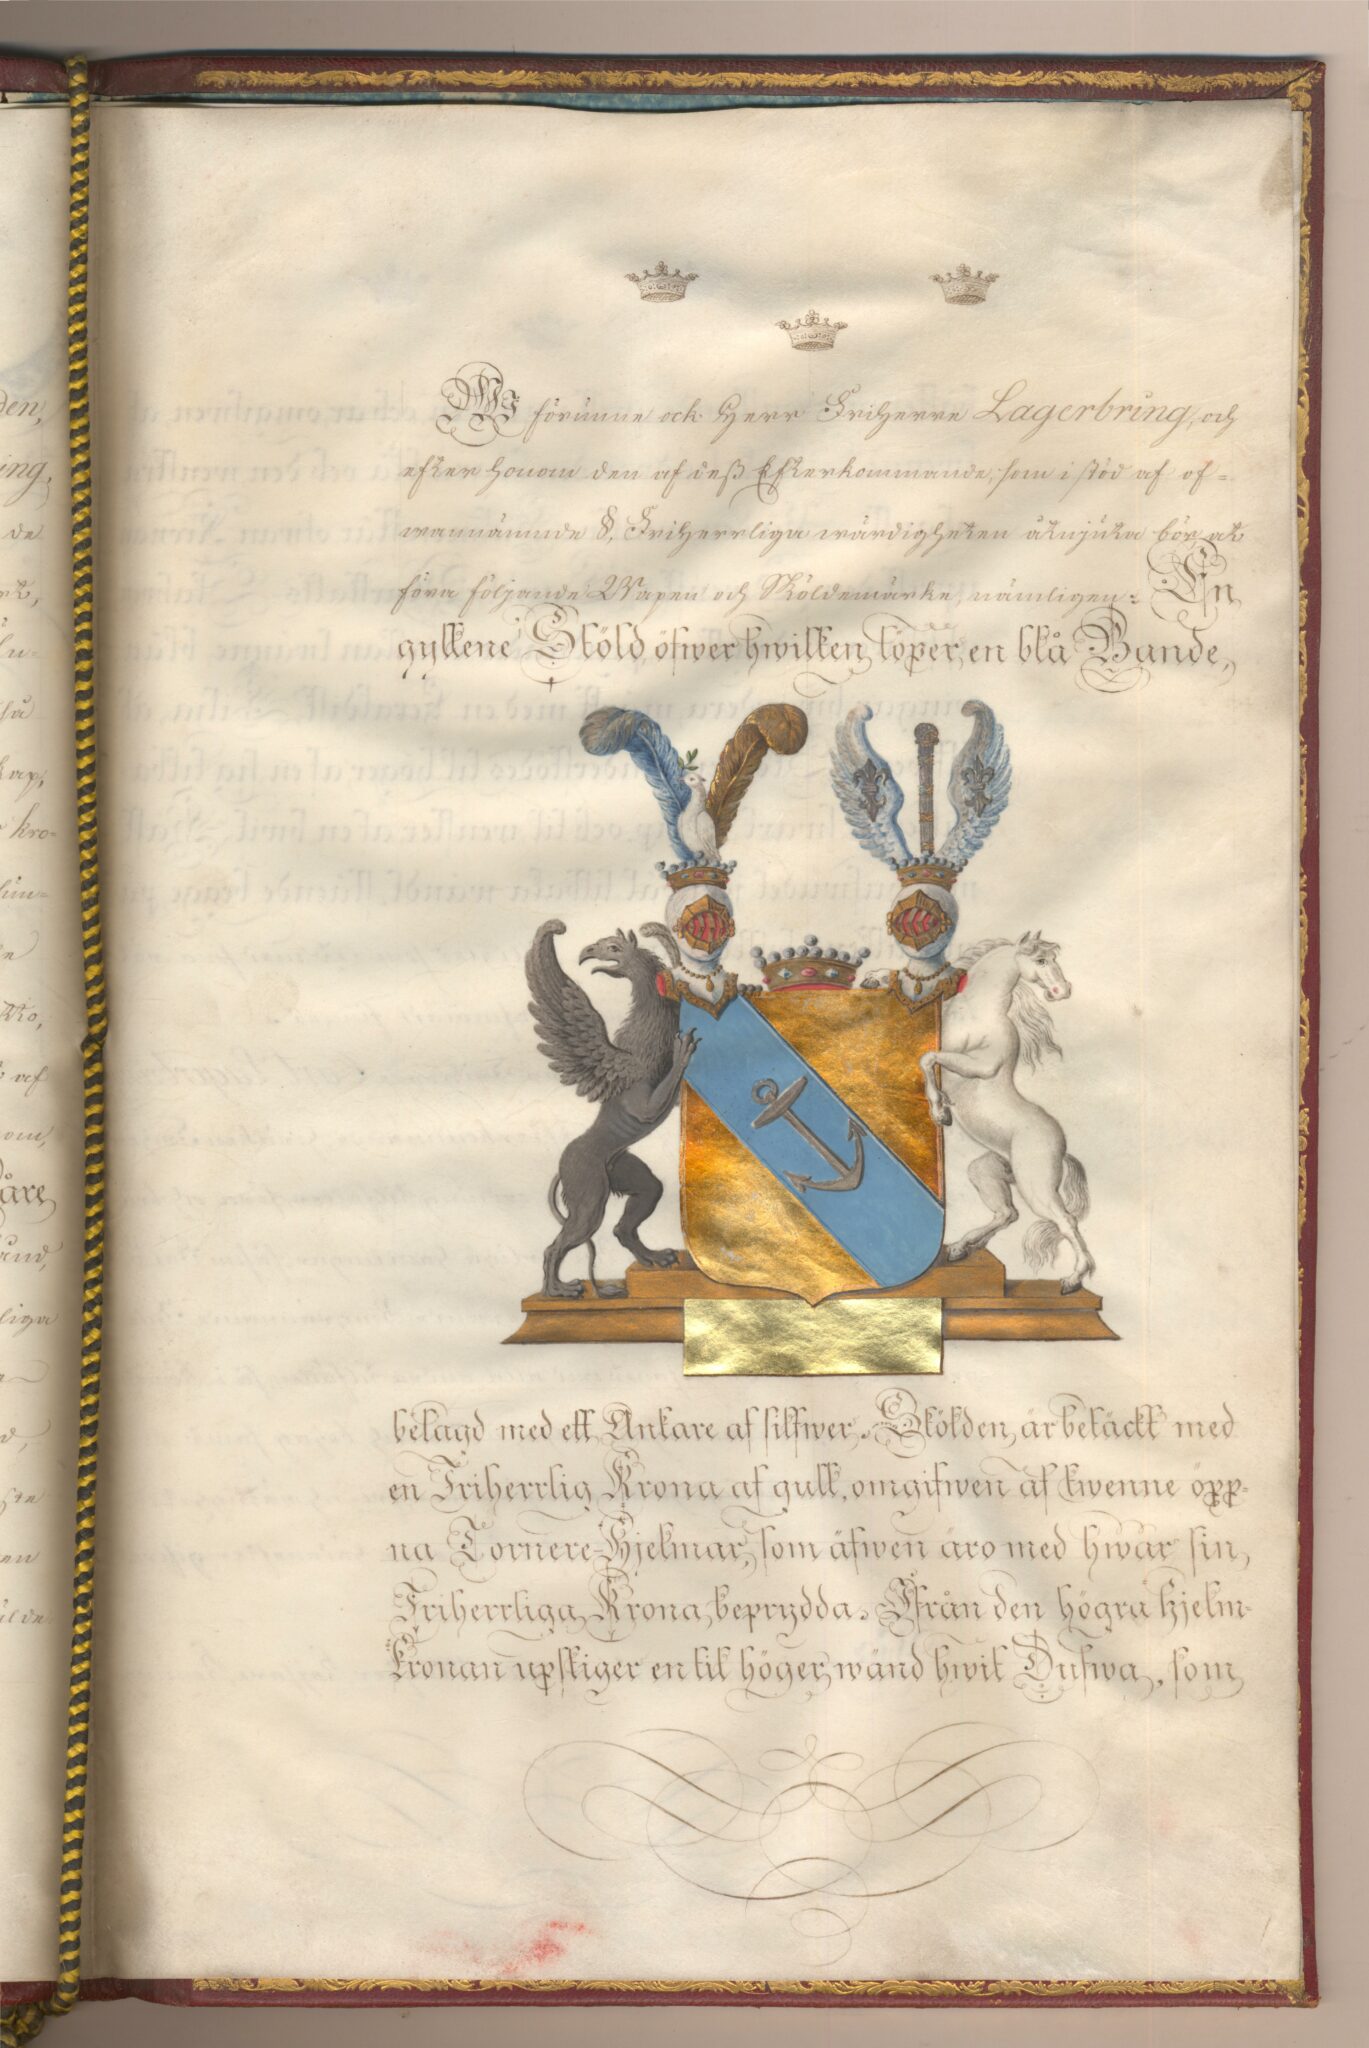 den,
ing,
de
Wi förunne ock Herr Friherre Lagerbring, och
efter honom den af deß Efterkommande, som i stöd af of-
wannämnde §, Friherrliga wärdigheten åtnjuta bör, at
föra följande Wapen och Sköldemärke, nämligen: En
gyllene Sköld öfwer hwilken löper en blå Bande,
belagd med ett Ankare af silfwer. Skölden är betäckt med
en Friherrlig Krona af gull, omgifwen af twenne öpp-
na Tornere-Hjelmar, som äfwen äro med hwar sin
Friherrliga Krona beprydda. Ifrån den högra hjelm-
kronan upstiger en til höger wänd hwit Dufwa, som